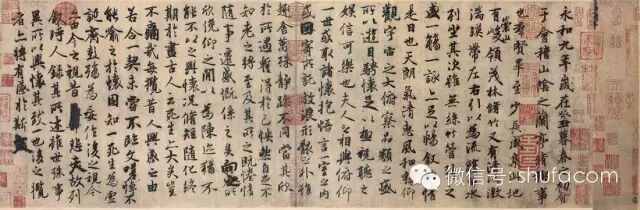 永和九年歲在癸丑暮春之初會
于會稽山陰之蘭亭脩禊事
也羣賢畢至少長咸集此地
有崇山峻領茂林脩竹又有清流激
湍暎帶左右引以為流觴曲水
列坐其次雖無絲竹管弦之
盛一觴一詠亦足以暢敘幽情
是日也天朗氣清惠風和暢仰
觀宇宙之大俯察品類之盛
所以遊目騁懷足以極視聽之
娛信可樂也夫人之相與俯仰
一世或取諸懷抱悟言一室之內
或因寄所託放浪形骸之外雖
趣舍萬殊靜躁不同當其欣
於所遇蹔得於己怏然自足不
知老之將至及其所之既惓情
隨事遷感慨係之矣向之所
欣俛仰之閒以為陳迹猶不
能不以之興懷況脩短隨化終
期於盡古人云死生亦大矣豈
不痛哉每攬昔人興感之由
若合一契未嘗不臨文嗟悼不
能喻之於懷固知一死生為虛
誕齊彭殤為妄作後之視今
亦由今之視昔悲夫故列
敘時人錄其所述雖世殊事
異所以興懷其致一也後之攬
者亦將有感於斯文
微信号: shufacom